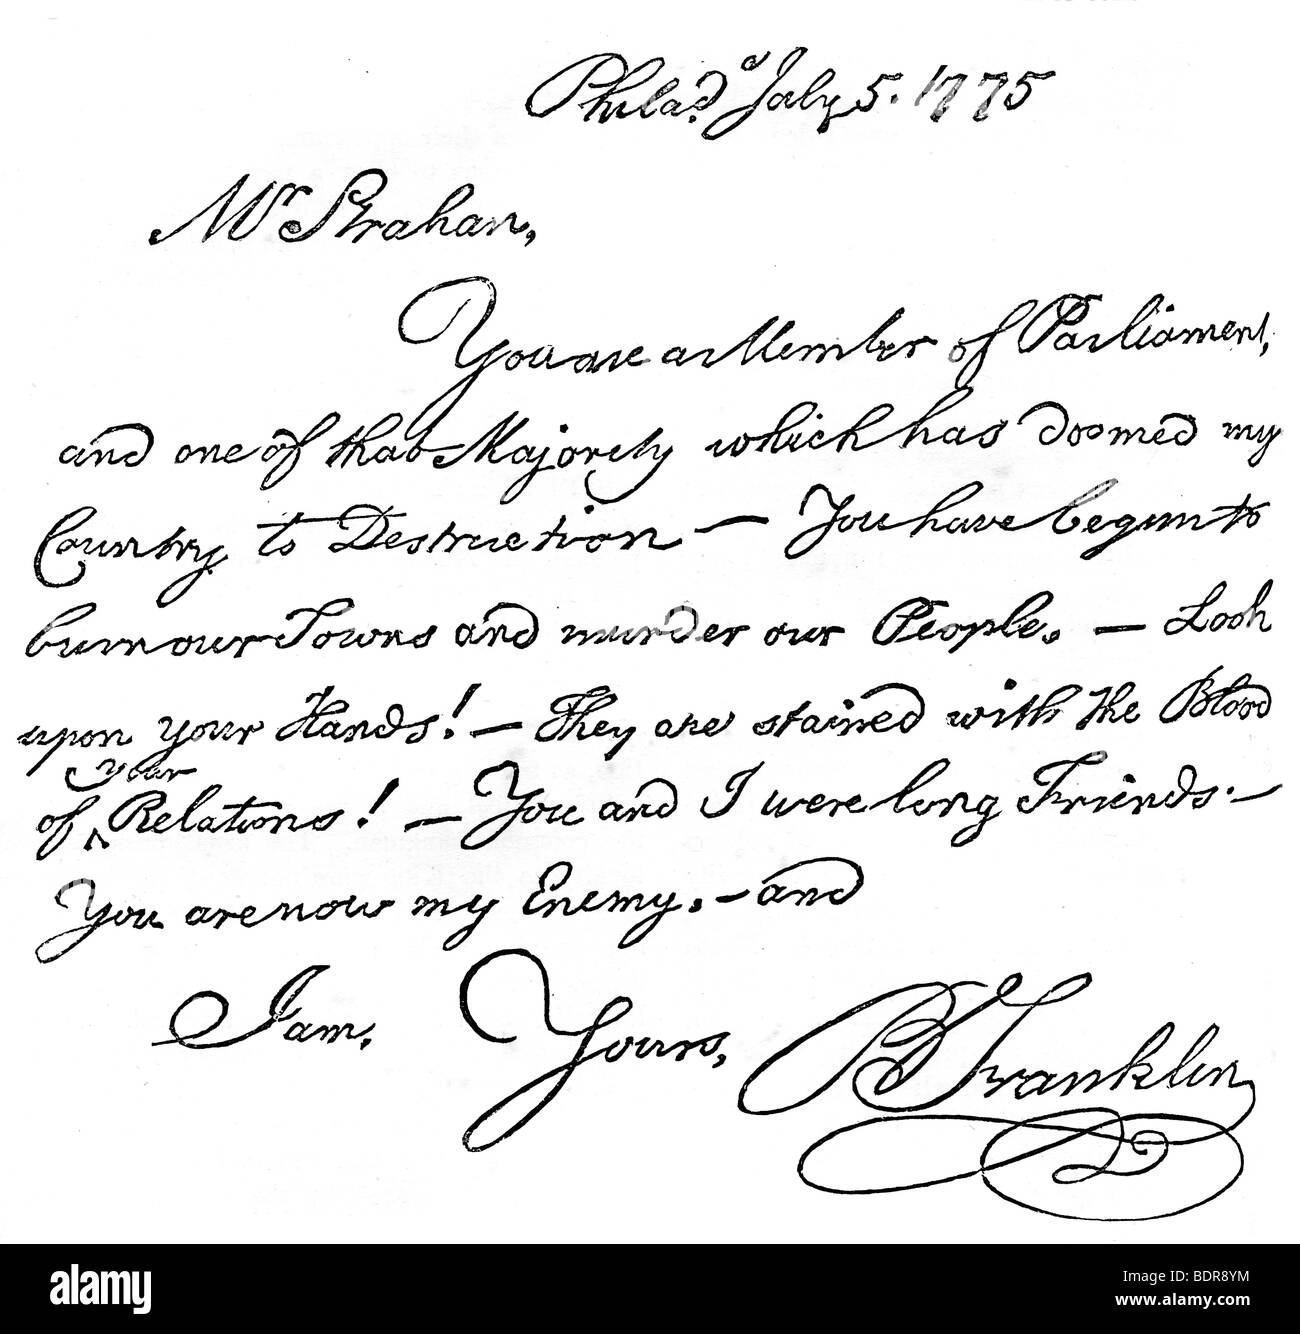 Philad.ᵃ July 5. 1775
Mr Strahan,
You are a Member of Parliament,
and one of that Majority which has doomed my
Country to Destruction — You have begun to
burn our Towns and murder our People. — Look
upon your Hands! — They are stained with the Blood
of ^your Relations! — You and I were long Friends. —
You are now my Enemy. — and
I am,
Yours,
B Franklin
alamy
Image ID: BDR8YM
www.alamy.com